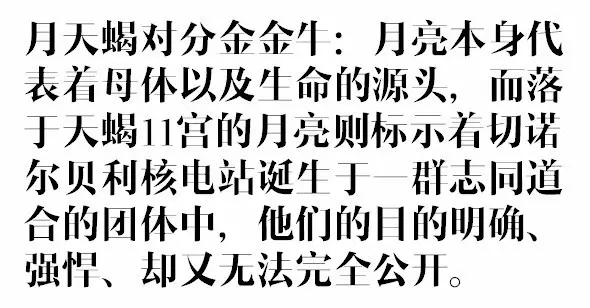 月天蝎对分金金牛：月亮本身代
表着母体以及生命的源头，而落
于天蝎11宫的月亮则标示着切诺
尔贝利核电站诞生于一群志同道
合的团体中，他们的目的明确、
强悍、却又无法完全公开。